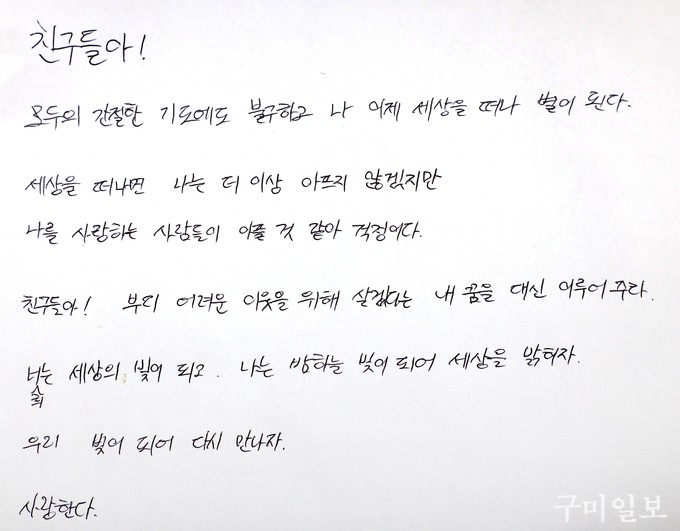 친구들아!
모두의 간절한 기도에도 불구하고 나 이제 세상을 떠나 별이 된다.
세상을 떠나면 나는 더 이상 아프지 않겠지만
나를 사랑하는 사람들이 아플 것 같아 걱정이다.
친구들아! 부디 어려운 이웃을 위해 살겠다는 내 꿈을 대신 이루어 주라.
너는 세상의 빛이 되고. 나는 밤하늘 빛이 되어 세상을 밝히자.
우리 빛이 되어 다시 만나자.
사랑한다.
구미일보